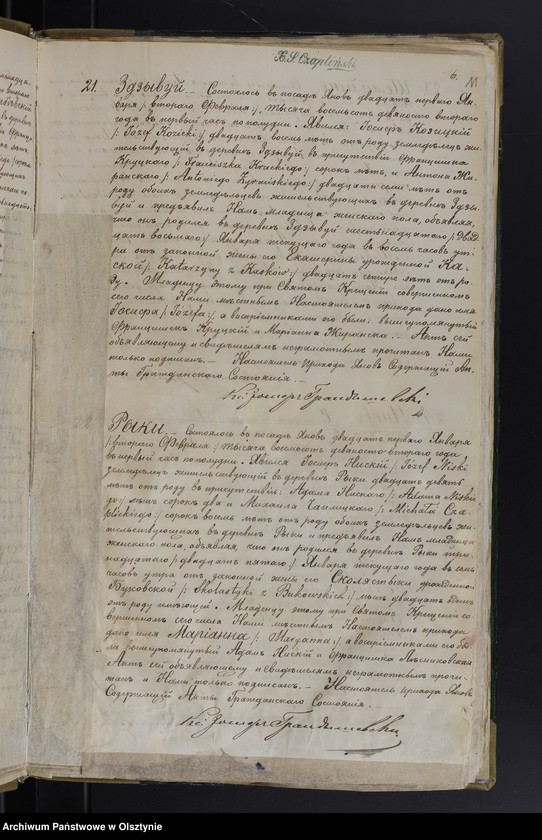 X. S. Czapliński
6.
21. Здзывуй. — Состоялось въ посадѣ Яновъ двадцать перваго Ян-
варя /: втораго Февраля :/ тысяча восемьсотъ девяносто втораго
года въ первый часъ по полудни. Явился: Іосифъ Козицкій
/: Józef Kozicki :/ двадцати восемь лѣтъ отъ роду земледѣлец жи-
тельствующій въ деревнѣ Здзывуй, въ присутствіи Францишка
Круцкаго /: Franciszka Kruckiego :/ сорокъ лѣтъ, и Антона Жи-
ранскаго /: Antoniego
роду обоихъ земледѣльцевъ жительствующихъ въ деревнѣ Здзы-
вуй и предъявилъ Намъ младенца женскаго пола, объявляя,
что онъ родился въ деревнѣ Здзывуй шестнадцатаго /: двад-
цать восьмаго :/ Января текущаго года въ восемь часовъ ут-
ра отъ законной жены его Екатерины урожденной Ка-
ской /: Katarzyny z Kasków :/ двадцать четыре лѣтъ отъ ро-
ду. Младенцу этому при Святомъ Крещеніи совершенномъ
сего числа Нами мѣстнымъ Настоятелемъ прихода дано имя
Іосифа /: Józefa :/, а воспріемниками его были: вышеупомянутый
Францишекъ Круцкій и Маріанна Жиранска. — Актъ сей
объявляющему и свидѣтелямъ неграмотнымъ прочитанъ Нами
только подписанъ. — Настоятель Прихода Яновъ Содержащій Ак-
ты Гражданскаго Состоянія. —
Рыки. — Состоялось въ посадѣ Яновъ двадцать перваго Января
/: втораго Февраля :/ тысяча восемьсотъ девяносто втораго года
въ первый часъ по полудни. Явился Іосифъ Нискій /: Józef Niski
земледѣлецъ жительствующій въ деревнѣ Рыки двадцать девять
лѣтъ отъ роду въ присутствіи: Адама Нискаго /: Adama Niskie-
go :/ лѣтъ сорокъ два и Михаила Чаплицкаго /: Michała Cza-
plickiego :/ сорокъ восемь лѣтъ отъ роду обоихъ земледѣльцевъ жи-
тельствующихъ въ деревнѣ Рыки и предъявилъ Намъ младенца
женскаго пола, объявляя, что онъ родился въ деревнѣ Рыки три-
надцатаго /: двадцать пятаго :/ Января текущаго года въ семь
часовъ утра отъ законной жены его Схолястыки урожденной
Буковской /: Skolastyki z Bukowskich :/ лѣтъ двадцать
отъ роду имѣющей. Младенцу этому при Святомъ Крещеніи со-
вершенномъ сего числа Нами мѣстнымъ Настоятелемъ прихода
дано имя Маріанна /: Maryanna :/, а воспріемниками его бы-
ли вышеупомянутый Адамъ Нискій и Францишка
Актъ сей объявляющему и свидѣтелямъ неграмотнымъ прочи-
танъ и Нами только подписанъ. — Настоятель Прихода Яновъ
Содержащій Акты Гражданскаго Состоянія. —
Archiwum Państwowe w Olsztynie